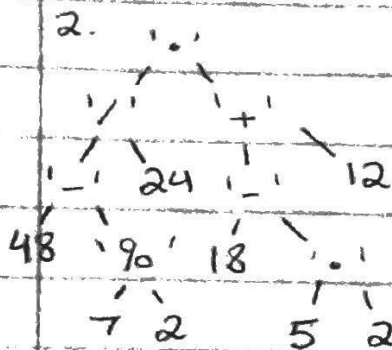 2. '·'
'/' '+'
'-' 24 '-' 12
48 '%' 18 '·'
7 2 5 2